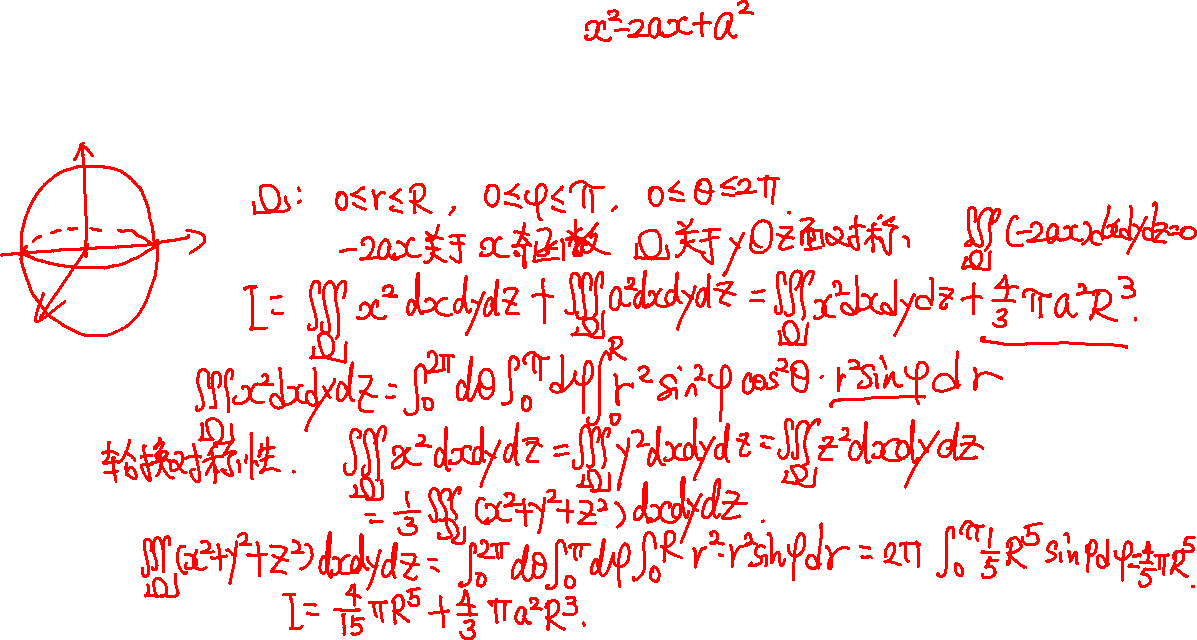 x²-2ax+a²
Ω: 0≤r≤R, 0≤φ≤π, 0≤θ≤2π.
-2ax关于x奇函数 Ω关于yOz面对称, ∭_Ω(-2ax)dxdydz=0
I=∭_Ω x²dxdydz+∭_Ω a²dxdydz=∭_Ω x²dxdydz+4/3 πa²R³.
∭_Ω x²dxdydz=∫₀^{2π}dθ∫₀^π dφ∫₀^R r²sin²φcos²θ·r²sinφdr
轮换对称性. ∭_Ω x²dxdydz=∭_Ω y²dxdydz=∭_Ω z²dxdydz
=1/3∭_Ω(x²+y²+z²)dxdydz.
∭_Ω(x²+y²+z²)dxdydz=∫₀^{2π}dθ∫₀^π dφ∫₀^R r²·r²sinφdr=2π∫₀^π 1/5 R⁵sinφdφ=4/5 πR⁵.
I=4/15 πR⁵+4/3 πa²R³.